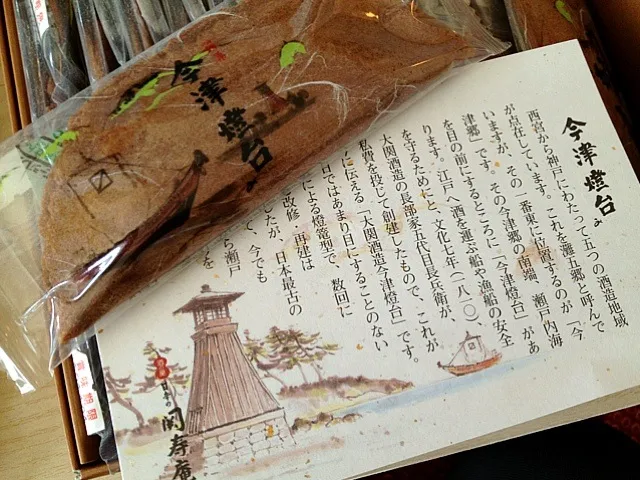 今津燈台
今津燈台
西宮から神戸にわたって五つの酒造地域
が点在しています。これを灘五郷と呼んで
いますが、その一番東に位置するのが「今
津郷」です。その今津郷の南端、瀬戸内海
を目の前にするところに「今津燈台」があ
ります。江戸へ酒を運ぶ船や漁船の安全
を守るためにと、文化七年(一八一〇)、
大関酒造の長部家五代目長兵衛が、
私費を投じて創建したもので、これが
に伝える「大関酒造今津燈台」です。
日ではあまり目にすることのない
による燈篭型で、数回に
改修・再建は
たが、日本最古の
、今でも
ら瀬戸
を
関寿庵